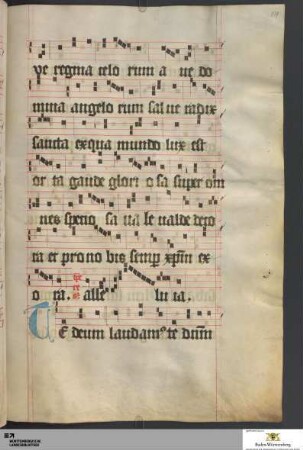 ve regina celo rum a ue do
mina angelo rum sal ue radix
sancta ex qua mundo lux est
or ta gaude glori o sa super om
nes spe
o sa ua le ualde deco
ra et pro no bis semp xpm ex
o ra. alle lu ia.
TE deum laudam⁹ te dnm